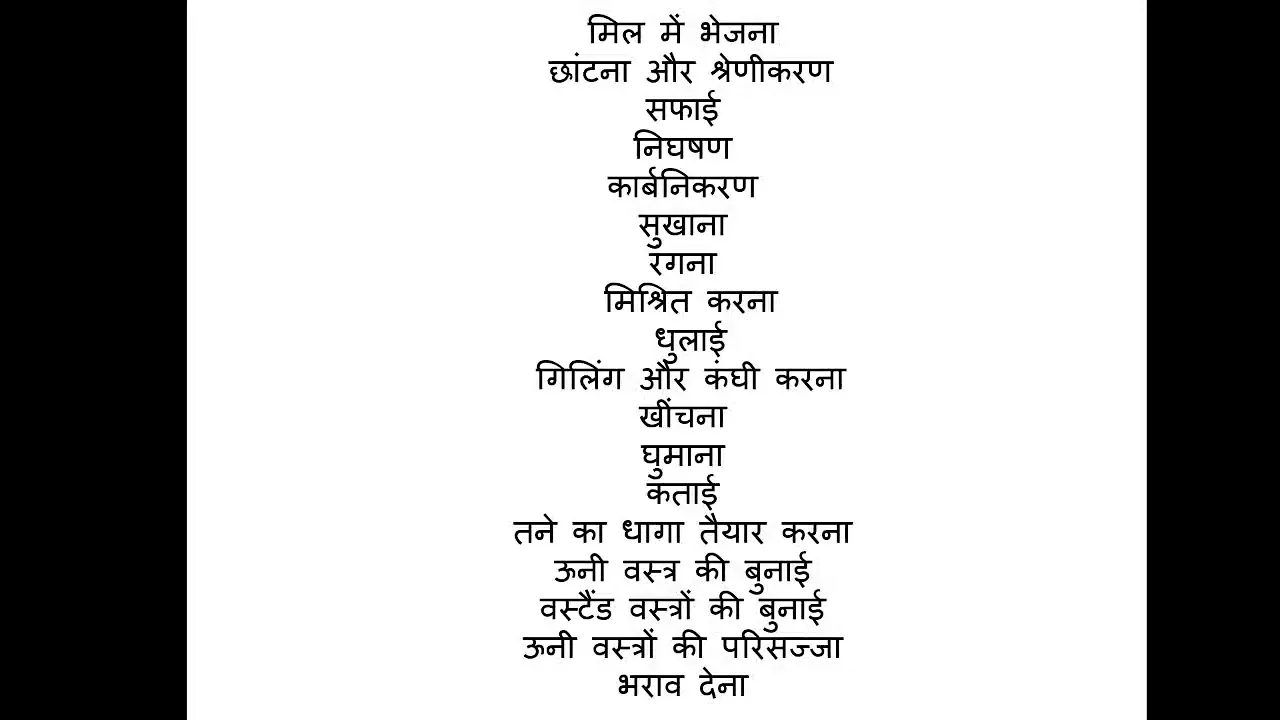 मिल में भेजना
छांटना और श्रेणीकरण
सफाई
निघषण
कार्बनिकरण
सुखाना
रगना
मिश्रित करना
धुलाई
गिलिंग और कंघी करना
खींचना
घुमाना
कताई
तने का धागा तैयार करना
ऊनी वस्त्र की बुनाई
वस्टैंड वस्त्रों की बुनाई
ऊनी वस्त्रों की परिसज्जा
भराव देना